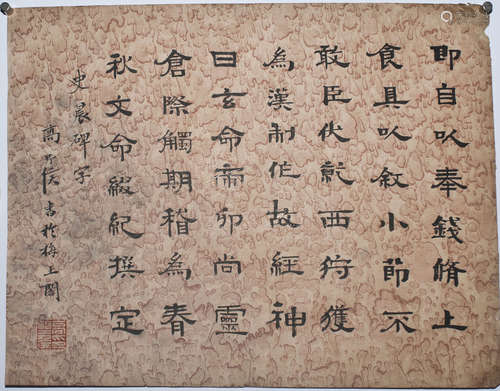 即自以奉錢脩上
食具以敘小節不
敢臣伏就西狩獲
為漢制作故經神
曰玄命帝卯尚靈
倉際觸期稽為春
秋文命綴紀撰定
史晨碑字
高二侯書於海上閣